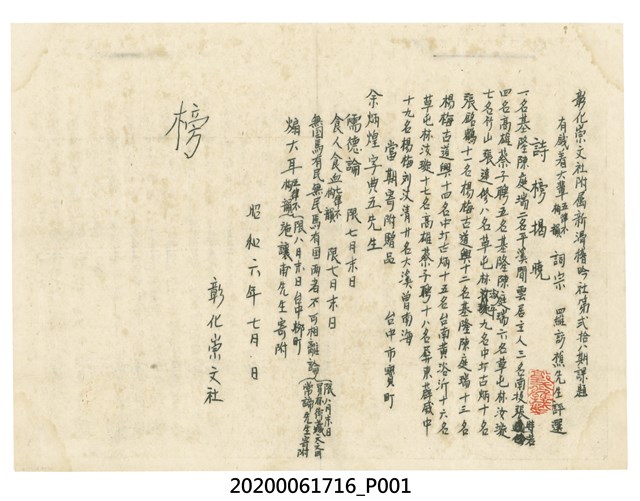 彰化崇文社附屬新潟構吟社第貳拾八期課題
有感 詞宗 羅 先生評選
詩榜揭曉
一名基隆陳庭瑞二名平溪閒雲居主人三名南投張
四名高雄蔡子聘五名基隆陳庭瑞六名草屯林汝
七名竹山張達修八名草屯林 九名中圤古炳十名
張 鶴十一名楊梅古道興十二名基隆陳庭瑞十三名
楊梅古道興十四名中圤古炳十五名台南黃谷沂十六名
草屯林汝 十七名高雄蔡子聘十八名屏東薛咸中
十九名楊梅劉汶清廿名大溪曾南海
當期寄附贈品 台中市寶町
余炳煌字典五先生
儒德論 限七月末日
食人食血 限七月末日
無國焉有民無民焉有國兩者不可相離論 限八月末日 先生寄附
煽大耳 限八月末日台中柳町 施讓甫先生寄附
昭和六年七月 日
彰化崇文社
榜
20200061716_P001